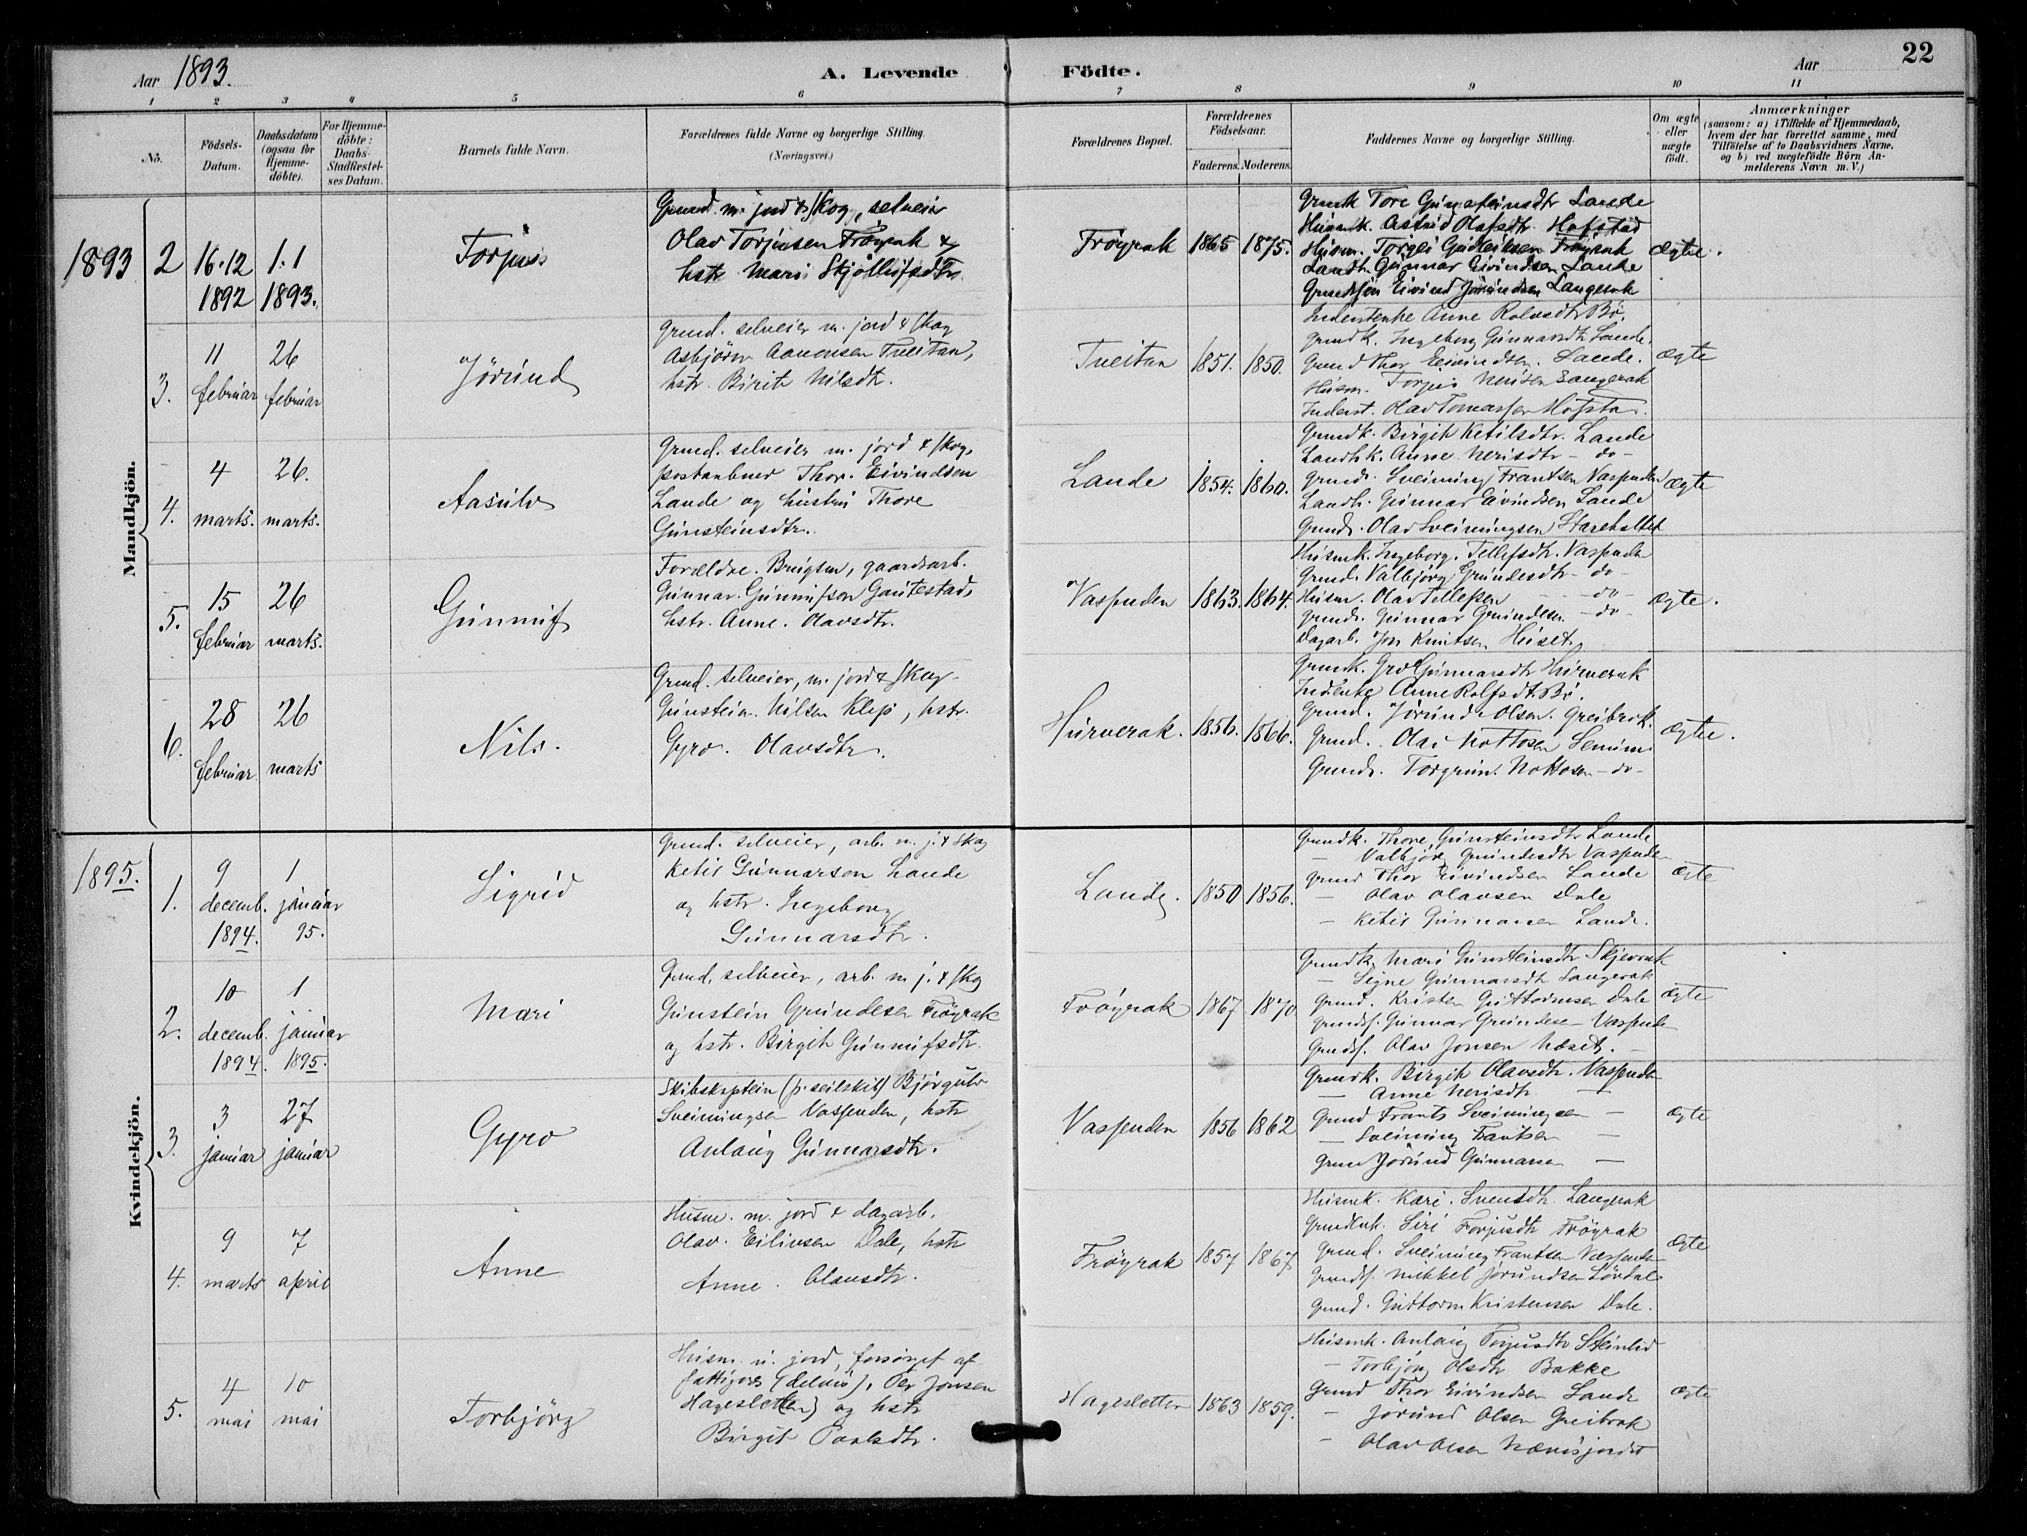 Aar 1893.
A. Levende Födte.
Aar 22
1 2 3 4 5 6 7 8 9 10 11
No.
Födsels-Datum.
Daabsdatum (ogsaa for Hjemme-döbte).
For Hjemme-döbte: Daabs-Stadfæstel-ses Datum.
Barnets fulde Navn.
Forældrenes fulde Navne og borgerlige Stilling.
(Næringsvei.)
Forældrenes Bopæl.
Forældrenes Födselsaar.
Faderens. Moderens.
Faddernes Navne og borgerlige Stilling.
Om ægte eller uægte födt.
Anmærkninger
(saasom: a) i Tilfælde af Hjemmedaab,
hvem der har forrettet samme, med
Tilföielse af to Daabsvidners Navne,
og b) ved uægtefödte Börn An-
melderens Navn m. V.)
Mandkjön.
1893
2
16.12 1892
1.1 1893.
Torjus
Grund. m. jord & skog, selveier
Olav Torjusen Fröyrak &
hstr Mari Skjöllufsdtr.
Fröyrak
1865 1875.
Grundk Tore Gunsteinsdtr Lande
Husmk. Astrid Olafsdtr. Hofstad
Husm. Torgei Gudleiksen Fröyrak
Landh. Gunnar Eivindsen Lande
Grundsön Eivind Jörundsen Langerak
Ægte.
3.
11 februar
26 februar
Jörund
Grund. selveier m. jord & skog
Asbjörn Aanensen Tveitan,
hstr. Birit Nilsdtr.
Tveitan
1851. 1850.
Inderstenke Anne Rolvsdtr Bö.
Grundk. Ingeborg Gunnarsdtr Lande.
Grund Thor Eivindsen. Lande.
Husm. Torjus Nerisen Langerak
Inderst. Olav Tomassen Hofstad.
Ægte
4.
4 marts.
26. marts.
Aasulv
Grund. selveier m. jord & skog,
postaabner Thor. Eivindsen
Lande og hustru Thore
Gunsteinsdtr.
Lande
1854. 1860.
Grundk. Birgit Ketilsdtr. Lande
Landhk. Anne Nerisdtr - do -
Grund. Sveinung Frantsen Vasenden
Landh. Gunnar Eivindsen Lande
Grund. Olav Sveinungsen
Ægte
5.
15 februar
26 marts.
Gunnuf
Forældre. Brugsm, gaardsarb.
Gunnar. Gunnufsen Gautestad,
hstr. Anne. Olavsdtr.
Vassenden
1863. 1864.
Husmk. Ingeborg. Tellefsdtr. Vassenden
Grund. Valbjörg Grundesdtr - do -
Husm. Olav Tellefsen - do -
Grunds. Gunnar Grundesen - do -
Dagarb. Jon Knutsen Huset
Ægte.
6.
28 februar
26 marts
Nils.
Grund. selveier, m. jord & skog
Gunstein. Nilsen Klep, hstr.
Gyro. Olavsdtr.
Hurverak.
1856. 1866.
Grundk. Gro Gunnarsdtr Hurverak
Indstenke Anne Rolfsdtr Bö.
Grund. Jörund Olsen. Greibrok.
Grund. Olav Nottosen
Grunds. Torgrim. Nottosen - do -
Ægte.
Kvindekjön.
1895.
1.
9 decemb. 1894.
1 januar 95.
Sigrid
Grund. selveier, arb. m. j. & skog
Ketil Gunnarsen Lande
og hstr. Ingeborg
Gunnarsdtr.
Lande.
1850 1856.
Grundk. Thore, Gunsteinsdtr Lande
- Valbjörg Grundesdtr Vassenden
Grund Thor Eivindsen Lande
- Olav Olavsen Dale
- Ketil Gunnarsen Lande.
Ægte
2.
10 decemb. 1894.
1 januar 1895.
Mari
Grund. selveier, arb. m j. & skog
Gunstein Grundesen Fröyrak
og hstr. Birgit Gunnufsdtr.
Fröyrak
1867 1870
Grundk Mari Gunsteinsdtr
- Signe Gunnarsdtr Langerak
Grund. Kristen Guttormsen Dale
Grunds. Gunnar Grundesen Vassenden
Grunds. Olav Jonsen Næset.
Ægte
3.
3 januar
27 januar
Gyro
Skibskaptein (p. seilskib) Björgulv
Sveinungsen Vassenden, hstr
Anlaug Gunnarsdtr.
Vassenden
1856 1862
Grundk. Birgit Olavsdtr. Vassenden
- Anne Nerisdtr -
Grund Frants Sveinungsen -
- Sveinung Frantsen -
Grund Jörund Gunnarsen -
Ægte
4.
9 marts
7 april
Anne
Husm. m. jord & dagarb.
Olav. Eilivsen Dale, hstr
Anne. Olavsdtr.
Fröyrak
1857 1867
Husmk. Kari. Svensdtr. Langrak
Siri Torjusdtr Fröyrak
Grund. Sveinung Frantsen Vassenden
Grunds. Mikkel Jörundsen Lövdal
Grund. Guttorm Kristensen Dale.
Ægte
5.
4 mai
10 mai
Torbjörg
Husm. u. jord, forsörget af
fattigvæs (delvis), Per Jonsen
Hagesletten) og hstr
Birgit Paalsdtr.
Hagesletten
1863 1859.
Husmk. Anlaug Torjusdtr
- Torbjörg Olsdtr Bakke
Grund Thor Eivindsen Lande
- Jörund Olsen Greibrok
- Olav Olsen
Ægte